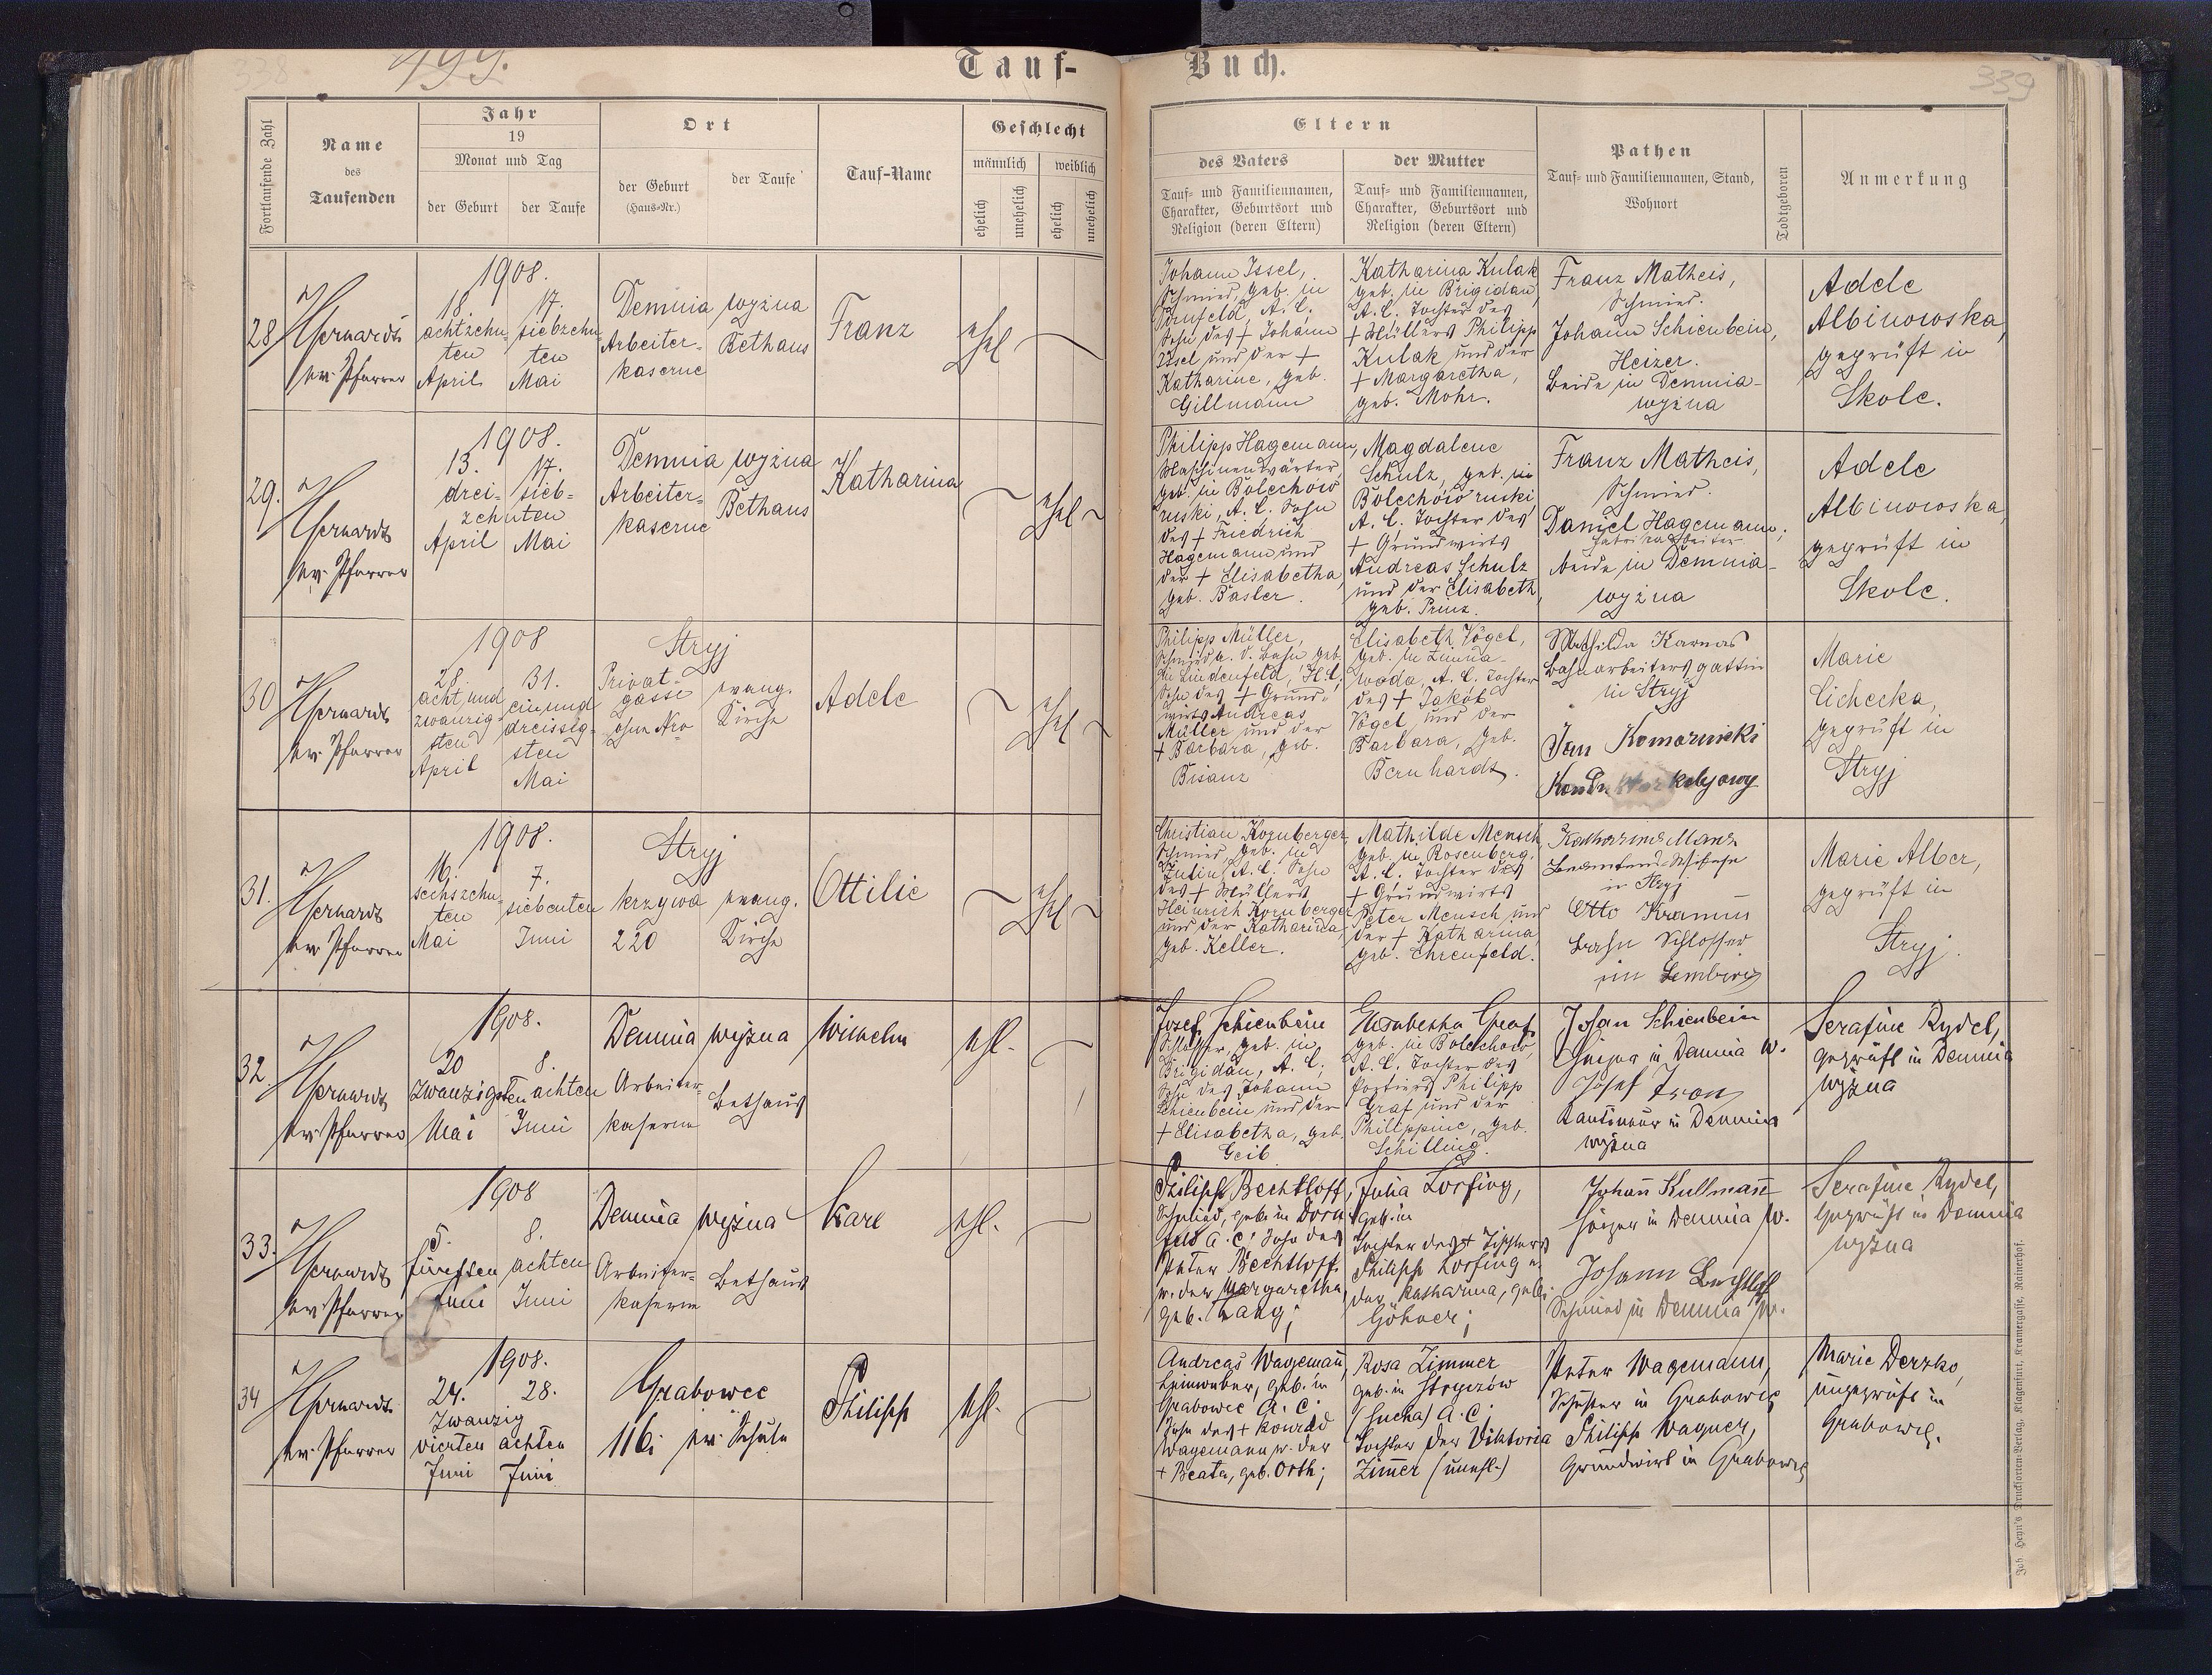 338
199.
Tauf-
Buch.
339
Fortlaufende Zahl
Name
des
Taufenden
Jahr
19
Monat und Tag
der Geburt
der Taufe
Ort
der Geburt
(Haus-Nr.)
der Taufe
Tauf-Name
Geschlecht
männlich
weiblich
ehelich
unehelich
ehelich
unehelich
Eltern
des Vaters
Tauf- und Familiennamen,
Charakter, Geburtsort und
Religion (deren Eltern)
der Mutter
Tauf- und Familiennamen,
Charakter, Geburtsort und
Religion (deren Eltern)
Pathen
Tauf- und Familiennamen, Stand,
Wohnort
Todtgeboren
Anmerkung
28
ev. Pfarrer
1908.
18.
achtzehn-
ten
April
17.
siebzehn-
ten
Mai
Demnia wyżna
Arbeiter-
kaserne
Bethaus
Franz
ehel
Johann Issel,
Schmied, geb. in
Dornfeld, A. C.
Sohn des + Johann
Issel und der +
Katharine, geb.
Gillmann
Katharina Kulak
geb. in Brigidau,
A. C. Tochter des
+ Müllers Philipp
Kulak und der
+ Margaretha,
geb. Mohr.
Franz Matheis,
Schmied.
Johann Schienbein,
Heizer.
beide in Demnia-
wyżna
Adele
Albinowska,
geprüft in
Skole.
29.
ev. Pfarrer
1908.
13.
17.
drei-
sieb-
zehnten
April
Mai
Demnia wyżna
Arbeiter-
kaserne
Bethaus
Katharina
ehel
Philipp Hagemann,
Maschinenwärter
geb. in Bolechów
ruski, A. C. Sohn
des + Friedrich
Hagemann und
der + Elisabetha,
geb. Basler.
Magdalene
Schulz, geb. in
Bolechów ruski
A. C. Tochter des
+ Grundwirts
Andreas Schulz
und der Elisabeth,
geb. Prinz.
Franz Matheis,
Schmied.
Daniel Hagemann,
Fabriksarbeiter
beide in Demnia-
wyżna
Adele
Albinowska,
geprüft in
Skole.
30
ev. Pfarrer
1908
28.
acht und
zwanzig-
sten
April
31.
ein und
dreissig-
sten
Mai
Stryj
Privat-
gasse
ohne Nro
evang.
Kirche
Adele
ehel
Philipp Müller,
Schmied a. d. Bahn geb.
in Lindenfeld, H. C.
Sohn des + Grund-
wirts Andreas
Müller und der
+ Barbara, geb.
Bisanz
Elisabeth Vogel,
geb. in Zimna-
woda, A. C. Tochter
des + Jakob
Vogel und der
Barbara, geb.
Bernhardt.
Mathilda Karnas
Bahnarbeitersgattin
in Stryj
Jan Komarnicki
Marie
Cichecka,
geprüft in
Stryj
31.
ev. Pfarrer
1908.
16.
sechszehn-
ten
Mai
7.
siebenten
Juni
Stryj
krzywa
220
evang.
Kirche
Ottilie
ehel
Christian Kornberger
Schmied, geb. in
A. C. Sohn
des + Müllers
Heinrich Kornberger
und der Katharina,
geb. Keller.
Mathilde Mensch,
geb. in Rosenberg.
A. C. Tochter des
+ Grundwirts
Peter Mensch und
der + Katharina,
geb. Ehrenfeld.
Katharina Manz
in Stryj
Otto Kramm
Bahn Schlosser
in Lemberg
Marie Alber,
geprüft in
Stryj.
32.
ev. Pfarrer
1908.
20
zwanzigsten
Mai
8.
achten
Juni
Demnia wyżna
Arbeiter-
kaserne
Bethaus
Wilhelm
ehl.
Josef Schienbein
Schlosser, geb. in
Brigidau, A. C.;
Sohn des Johann
Schienbein und der
+ Elisabetha, geb.
Geib
Elisabetha Graf
geb. in Bolechow,
A. C. Tochter des
Portiers Philipp
Graf und der
Philippine, geb.
Schilling.
Johan Schienbein
Heizer in Demnia w.
Josef
in Demnia
wyżna
Serafine Rydel,
geprüft in Demnia
wyżna
33.
ev. Pfarrer
1908
5.
fünften
Juni
8.
achten
Juni
Demnia wyżna
Arbeiter-
kaserne
Bethaus
Karl
ehl.
Philipp Bechtloff,
Schmied, geb. in Dorn
feld A. C; Sohn des
Peter Bechtloff
u. der Margaretha,
geb. Lang;
Julia Lorfing,
geb. in
Tochter des + Tischlers
Philipp Lorfing u.
der Katharina, geb.
Göhner;
Johann Kullmann
Heizer in Demnia w.
Johann Bechtloff
Schmied in Demnia w.
Serafine Rydel,
geprüft in Demnia
wyżna
34
ev. Pfarrer
1908.
24.
28.
zwanzig
vierten achten
Juni Juni
Grabowce
116;
ev. Schule
Philipp
ehl.
Andreas Wagemann,
Leinweber, geb. in
Grabowce A. C.
Sohn des + Konrad
Wagemann u. der
+ Beata, geb. Orth;
Rosa Zimmer
geb. in
(Sucha) A. C.
Tochter der Viktoria
Zimmer (unehl.)
Peter Wagemann,
Schuster in Grabowce
Philipp Wagner,
Grundwirt in Grabowce
Marie Derzko,
ungeprüft in
Grabowce.
Joh. Heyn's Drucksorten-Verlag, Klagenfurt, Kramergasse, Rainerhof.